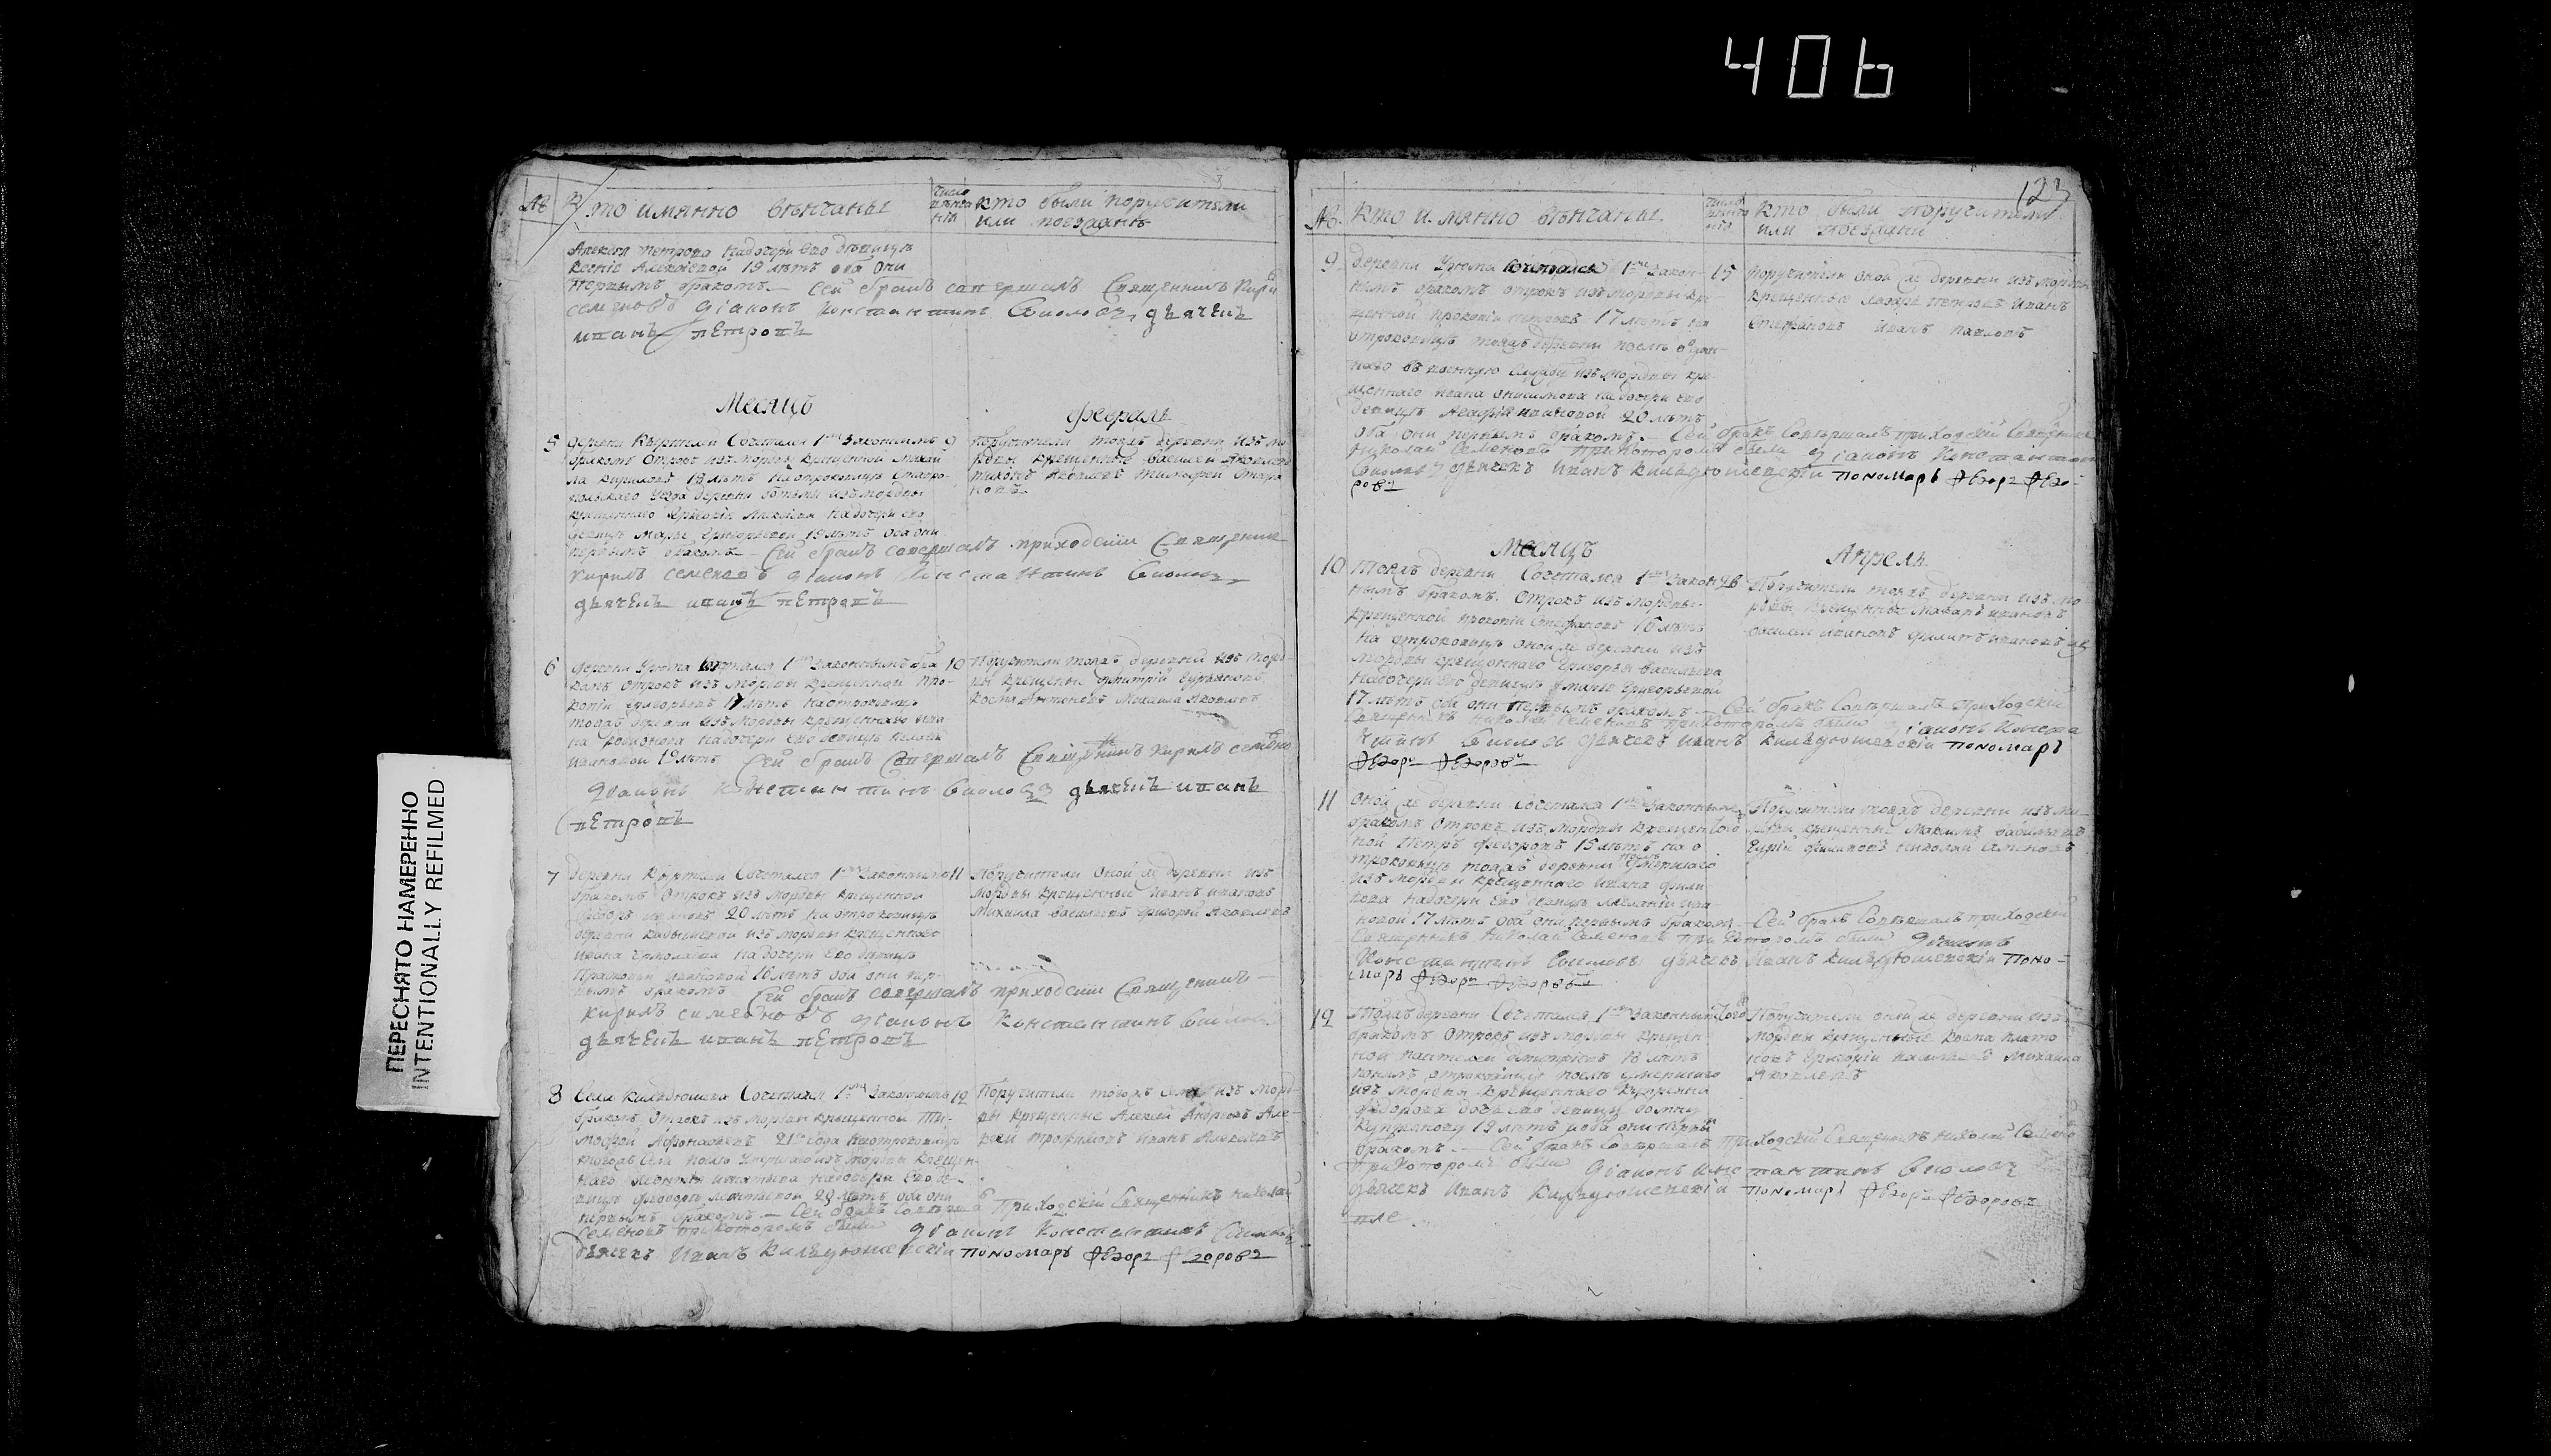 406
ПЕРЕСНЯТО НАМЕРЕННО
INTENTIONALLY REFILMED
№ Кто имянно вѣнчаны
число вѣнча нія
кто были поручители
или поезжанѣ
Алексея Петрова надочери Ево дѣвицѣ
Ксеніе Алексіевой 19 лѣтъ оба они
первымъ бракомъ. — Сей бракъ совершалъ Священникъ
семеновъ діаконъ Константинъ дьячекъ
иванъ петровъ
Месяцъ Февраль
5 деревни Сочетался 1мъ законнымъ 9
бракомъ Отрокъ изъ мордвы крещенной Михай
ла Кириловъ 18 лѣтъ на отроковицѣ Ставро-
польскаго уезда деревни изъ мордвы
крещеннаго Григорія Алексіева надочери ево
девицѣ Марье Григорьевой 19 лѣтъ оба они
первымъ бракомъ — Сей бракъ совершалъ приходскіи Священникъ
Кирилъ семеновъ діаконъ Константинъ
дьячекъ иванъ петровъ
поручители тояжъ деревни изъ мо
рдвы крещенные Василеи Яковлевъ
Яковлевъ Тимофей
6 деревни Урюма сочетался 1мъ законнымъ бра 10
комъ отрокъ изъ мордвы крещенной Про-
копіи Григорьевъ 17 лѣтъ на отроковицѣ
тояжъ деревни изъ мордвы крещеннаго ива
на Родионова надочери Ево девицѣ
ивановой 19 лѣтъ Сей бракъ Совершалъ Священникъ Кирилъ семеновъ
діаконъ Константинъ дьячекъ иванъ
петровъ
Поручители тояжъ деревни изъ морд
вы крещеные Дмитрій
Козма Антоновъ Михаила Яковлевъ
7 деревни Сочетался 1мъ законнымъ 11
бракомъ Отрокъ изъ мордвы крещенной
Федоръ Ивановъ 20 лѣтъ на отроковицѣ
деревни изъ мордвы крещеннаго
ивана Ермолаева надочери Ево девицѣ
Прасковьи ивановой 16 лѣтъ оба они пер-
вымъ бракомъ Сей бракъ совершалъ приходскіи Священникъ
кирилъ семеновъ діаконъ Константинъ
дьячекъ иванъ петровъ
Поручители Оной же деревни изъ
мордвы крещенные Иванъ ивановъ
Михаила Васильевъ Григорей Яковлевъ
8 Села Кильдюшева Сочетался 1мъ законнымъ 12
бракомъ Отрокъ изъ мордвы крещенной Ти-
мофей Афонасьевъ 21го года на отроковицѣ
тогожъ села послѣ умершаго изъ мордвы крещен-
наго Леонтья надочери Ево де-
вицѣ Федорѣ Леонтьевой 20 лѣтъ оба они
первымъ бракомъ. — Сей бракъ Совершалъ Приходскій Священникъ Николай
Семеновъ прикоторомъ были діаконъ Константинъ
дьячекъ Иванъ Кильдюшевскіи пономарь Федоръ Федоровъ
Поручители тогожъ села изъ морд
вы крещенные Алексей Андреевъ Але-
ксей Трофимовъ Иванъ Алексеевъ
123
№ Кто имянно вѣнчаны
число вѣнча нія
Кто были поручители
или поезжани
9 деревни Урюма Сочетался 1мъ закон- 15
нымъ бракомъ отрокъ изъ мордвы кре-
щенной Прокопіи Петровъ 17 лѣтъ на
отроковицѣ тояжъ деревни послѣ отдан-
наго въ военную Службу изъ мордвы кре-
щеннаго ивана Онисимова надочери ево
девицѣ ивановой 20 лѣтъ
оба они первымъ бракомъ. — Сей бракъ Совершалъ приходскій Священникъ
Николай Семеновъ Прикоторомъ были діаконъ Константинъ
дьячекъ Иванъ Кильдюшевскіи пономарь Федоръ Федо-
ровъ
поручители оной же деревни изъ мордвы
крещенные Лазарь Петровъ Иванъ
Степановъ Иванъ Павловъ
Месяцъ Апрель
10 Тояжъ деревни Сочетался 1мъ закон 26
нымъ бракомъ. Отрокъ изъ мордвы
крещенной Прокопіи Степановъ 16 лѣтъ
на отроковицѣ оной же деревни изъ
мордвы крещеннаго Григорья Васильева
надочери ево девицѣ Марье Григорьевой
17 лѣтъ оба они первымъ бракомъ. — Сей бракъ Совершалъ приходскій
Священникъ Николай Семеновъ прикоторомъ были діаконъ Конста
нтинъ дьячекъ Иванъ Кильдюшевскіи пономарь
Федоръ Федоровъ
Поручители тояжъ деревни изъ мо
рдвы крещенные Макаръ ивановъ
Василей ивановъ Филипъ ивановъ
11 Оной же деревни Сочетался 1мъ законнымъ
бракомъ Отрокъ изъ мордвы крещен
ной Петръ Федоровъ 15 лѣтъ на о
троковицѣ тояжъ деревни послѣ умершаго
изъ мордвы крещеннаго Ивана Фили
пова надочери Ево девицѣ Меланіи ива-
новой 17 лѣтъ оба они первымъ бракомъ — Сей бракъ Совершалъ приходскій
Священникъ Николай Семеновъ при которомъ были діаконъ
Константинъ дьячекъ Иванъ Кильдюшевскіи Поно-
марь Федоръ Федоровъ
Поручители тояжъ деревни изъ мо
рдвы крещенные Максимъ Васильевъ
Филиповъ Николай Семеновъ
12 Тояжъ деревни Сочетался 1мъ законнымъ
бракомъ Отрокъ изъ мордвы крещен-
ной Пантелей Дмитріевъ 18 лѣтъ
отроковицу послѣ умершаго
изъ мордвы крещеннаго Купреяна
Федорова дочь ево девицу Домну
Купреянову 19 лѣтъ оба они первы
бракомъ. — Сей бракъ Совершалъ Приходскій Священникъ Николай Семеновъ
Прикоторомъ были діаконъ Константинъ
дьячекъ Иванъ Кильдюшевскіи пономарь Федоръ Федоровъ
Поручители оной же деревни изъ
мордвы крещенные Козма Плато
новъ Григоріи Васильевъ Михаила
Яковлевъ